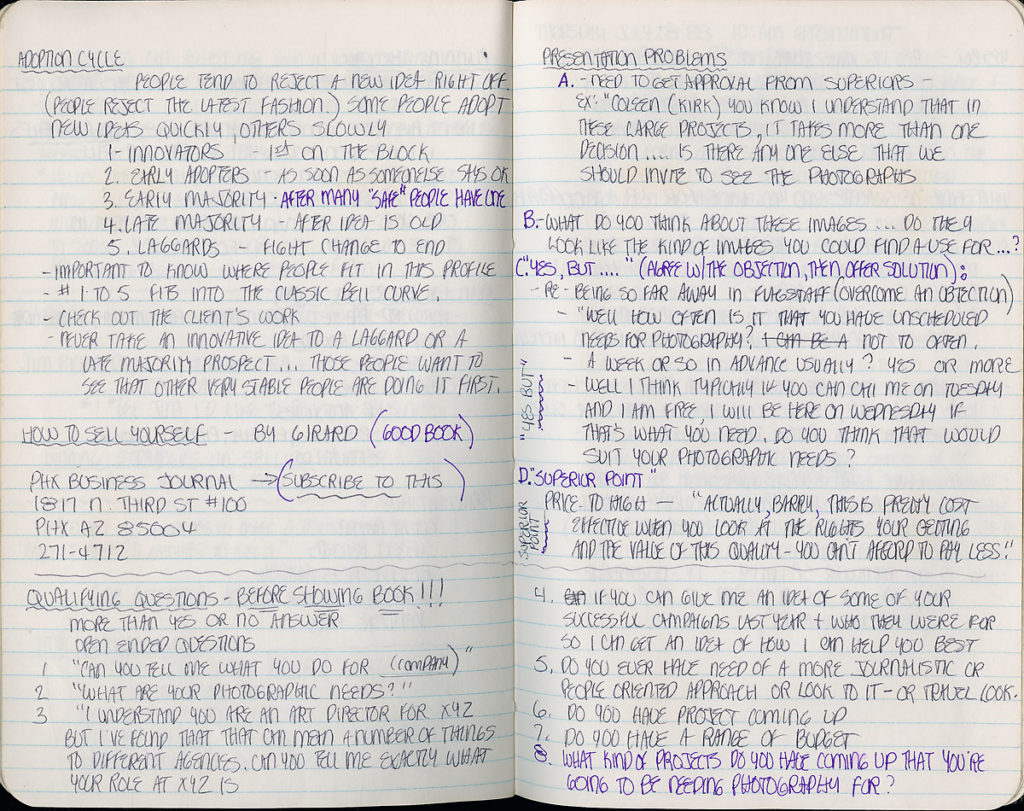 ADOPTION CYCLE
PEOPLE TEND TO REJECT A NEW IDEA RIGHT OFF.
(PEOPLE REJECT THE LATEST FASHION.) SOME PEOPLE ADOPT
NEW IDEAS QUICKLY, OTHERS SLOWLY
1- INNOVATORS - 1st ON THE BLOCK
2. EARLY ADOPTERS - AS SOON AS SOMEONELSE SAYS OK
3. EARLY MAJORITY - AFTER MANY "SAFE" PEOPLE HAVE ONE
4. LATE MAJORITY - AFTER IDEA IS OLD
5. LAGGARDS - FIGHT CHANGE TO END
- IMPORTANT TO KNOW WHERE PEOPLE FIT IN THIS PROFILE
- # 1 TO 5 FITS INTO THE CLASSIC BELL CURVE.
- CHECK OUT THE CLIENT'S WORK
- NEVER TAKE AN INNOVATIVE IDEA TO A LAGGARD OR A
LATE MAJORITY PROSPECT... THOSE PEOPLE WANT TO
SEE THAT OTHER VERY STABLE PEOPLE ARE DOING IT FIRST.
HOW TO SELL YOURSELF - BY GIRARD (GOOD BOOK)
PHX BUSINESS JOURNAL → (SUBSCRIBE TO THIS)
1817 N. THIRD ST #100
PHX AZ 85004
271-4712
QUALIFYING QUESTIONS - BEFORE SHOWING BOOK!!!
MORE THAN YES OR NO ANSWER
OPEN ENDED QUESTIONS
1 "CAN YOU TELL ME WHAT YOU DO FOR (COMPANY)"
2 "WHAT ARE YOUR PHOTOGRAPHIC NEEDS?"
3 "I UNDERSTAND YOU ARE AN ART DIRECTOR FOR XYZ
BUT I'VE FOUND THAT THAT CAN MEAN A NUMBER OF THINGS
TO DIFFERENT AGENCIES. CAN YOU TELL ME EXACTLY WHAT
YOUR ROLE AT XYZ IS
PRESENTATION PROBLEMS
A. - NEED TO GET APPROVAL FROM SUPERIORS -
EX: "COLEEN (KIRK) YOU KNOW I UNDERSTAND THAT IN
THESE LARGE PROJECTS, IT TAKES MORE THAN ONE
DECISION.... IS THERE ANY ONE ELSE THAT WE
SHOULD INVITE TO SEE THE PHOTOGRAPHS
B.- WHAT DO YOU THINK ABOUT THESE IMAGES ... DO THEY
LOOK LIKE THE KIND OF IMAGES YOU COULD FIND A USE FOR...?
C. "YES, BUT...." (AGREE W/THE OBJECTION, THEN OFFER SOLUTION):
- RE - BEING SO FAR AWAY IN FLAGSTAFF (OVERCOME AN OBJECTION)
- "WELL HOW OFTEN IS IT THAT YOU HAVE UNSCHEDULED
NEEDS FOR PHOTOGRAPHY? I CAN BE A NOT TO OFTEN.
- A WEEK OR SO IN ADVANCE USUALLY? YES OR MORE
- WELL I THINK TYPICALLY IF YOU CAN CALL ME ON TUESDAY
AND I AM FREE, I WILL BE HERE ON WEDNESDAY IF
THAT'S WHAT YOU NEED. DO YOU THINK THAT WOULD
SUIT YOUR PHOTOGRAPHIC NEEDS?
"YES BUT"
D. "SUPERIOR POINT"
PRICE TO HIGH - "ACTUALLY, BARRY, THIS IS PRETTY COST
EFFECTIVE WHEN YOU LOOK AT THE RIGHTS YOUR GETTING
AND THE VALUE OF THIS QUALITY - YOU CAN'T AFFORD TO PAY LESS."
SUPERIOR
POINT
4. IF YOU CAN GIVE ME AN IDEA OF SOME OF YOUR
SUCCESSFUL CAMPAIGNS LAST YEAR + WHO THEY WERE FOR
SO I CAN GET AN IDEA OF HOW I CAN HELP YOU BEST
5. DO YOU EVER HAVE NEED OF A MORE JOURNALISTIC OR
PEOPLE ORIENTED APPROACH OR LOOK TO IT - OR TRAVEL LOOK.
6. DO YOU HAVE PROJECT COMING UP
7. DO YOU HAVE A RANGE OF BUDGET
8. WHAT KIND OF PROJECTS DO YOU HAVE COMING UP THAT YOU'RE
GOING TO BE NEEDING PHOTOGRAPHY FOR?